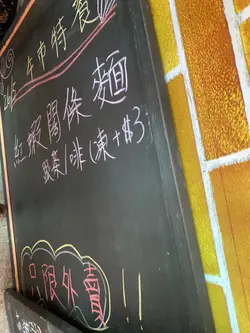 午市特餐
紅蝦闊條麵
跟茶/啡(凍+$3)
只限外賣!!